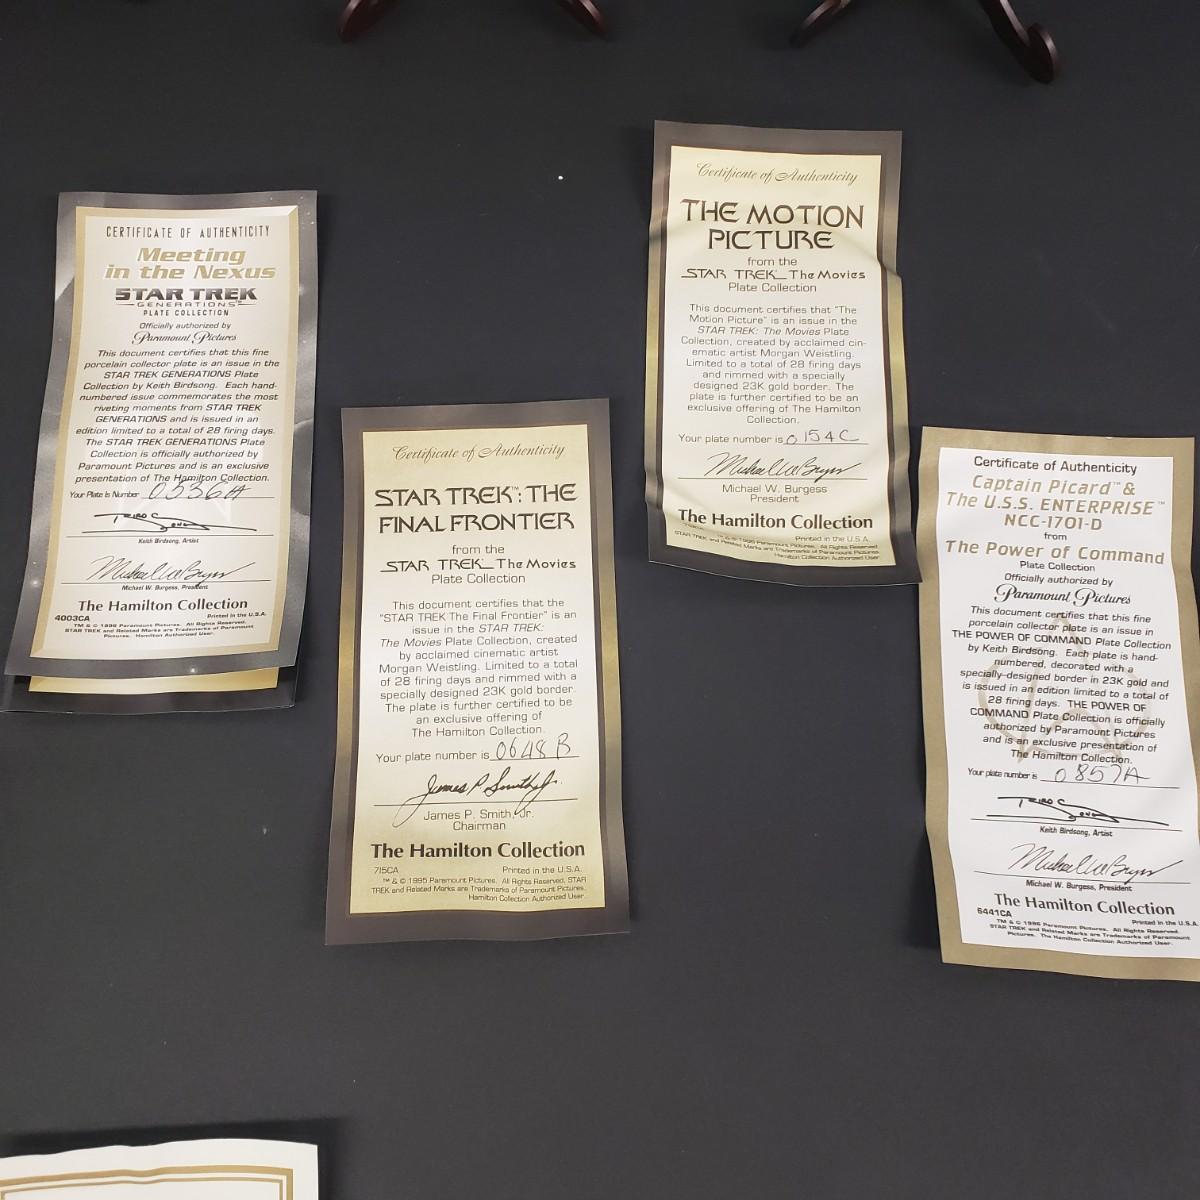 CERTIFICATE OF AUTHENTICITY
Meeting
in the Nexus
STAR TREK
GENERATIONS™
PLATE COLLECTION
Officially authorized by
Paramount Pictures
This document certifies that this fine
porcelain collector plate is an issue in the
STAR TREK GENERATIONS Plate
Collection by Keith Birdsong. Each hand-
numbered issue commemorates the most
riveting moments from STAR TREK
GENERATIONS and is issued in an
edition limited to a total of 28 firing days.
The STAR TREK GENERATIONS Plate
Collection is officially authorized by
Paramount Pictures and is an exclusive
presentation of The Hamilton Collection.
Your Plate is Number 0336A
Keith Birdsong, Artist
Michael W. Burgess, President
The Hamilton Collection
4003CA Printed in the U.S.A.
TM & © 1996 Paramount Pictures. All Rights Reserved.
STAR TREK and Related Marks are Trademarks of Paramount
Pictures. Hamilton Authorized User.
Certificate of Authenticity
STAR TREK™: THE
FINAL FRONTIER
from the
STAR TREK The Movies
Plate Collection
This document certifies that the
"STAR TREK The Final Frontier" is an
issue in the STAR TREK:
The Movies Plate Collection, created
by acclaimed cinematic artist
Morgan Weistling. Limited to a total
of 28 firing days and rimmed with a
specially designed 23K gold border.
The plate is further certified to be
an exclusive offering of
The Hamilton Collection.
Your plate number is 0648B
James P. Smith Jr.
James P. Smith, Jr.
Chairman
The Hamilton Collection
715CA Printed in the U.S.A.
™ & © 1995 Paramount Pictures. All Rights Reserved. STAR
TREK and Related Marks are Trademarks of Paramount Pictures.
Hamilton Collection Authorized User.
Certificate of Authenticity
THE MOTION
PICTURE
from the
STAR TREK The Movies
Plate Collection
This document certifies that "The
Motion Picture" is an issue in the
STAR TREK: The Movies Plate
Collection, created by acclaimed cin-
ematic artist Morgan Weistling.
Limited to a total of 28 firing days
and rimmed with a specially
designed 23K gold border. The
plate is further certified to be an
exclusive offering of The Hamilton
Collection.
Your plate number is 0154C
Michael W. Burgess
President
The Hamilton Collection
Printed in the U.S.A.
& © 1995 Paramount Pictures. All Rights Reserved.
STAR TREK and Related Marks are Trademarks of Paramount Pictures.
Hamilton Collection Authorized User.
Certificate of Authenticity
Captain Picard™ &
The U.S.S. ENTERPRISE™
NCC-1701-D
from
The Power of Command
Plate Collection
Officially authorized by
Paramount Pictures
This document certifies that this fine
porcelain collector plate is an issue in
THE POWER OF COMMAND Plate Collection
by Keith Birdsong. Each plate is hand-
numbered, decorated with a
specially-designed border in 23K gold and
is issued in an edition limited to a total of
28 firing days. THE POWER OF
COMMAND Plate Collection is officially
authorized by Paramount Pictures
and is an exclusive presentation of
The Hamilton Collection.
Your plate number is 0857A
Keith Birdsong, Artist
Michael W. Burgess, President
The Hamilton Collection
6441CA Printed in the U.S.A.
TM & © 1996 Paramount Pictures. All Rights Reserved.
STAR TREK and Related Marks are Trademarks of Paramount
Pictures. The Hamilton Collection Authorized User.